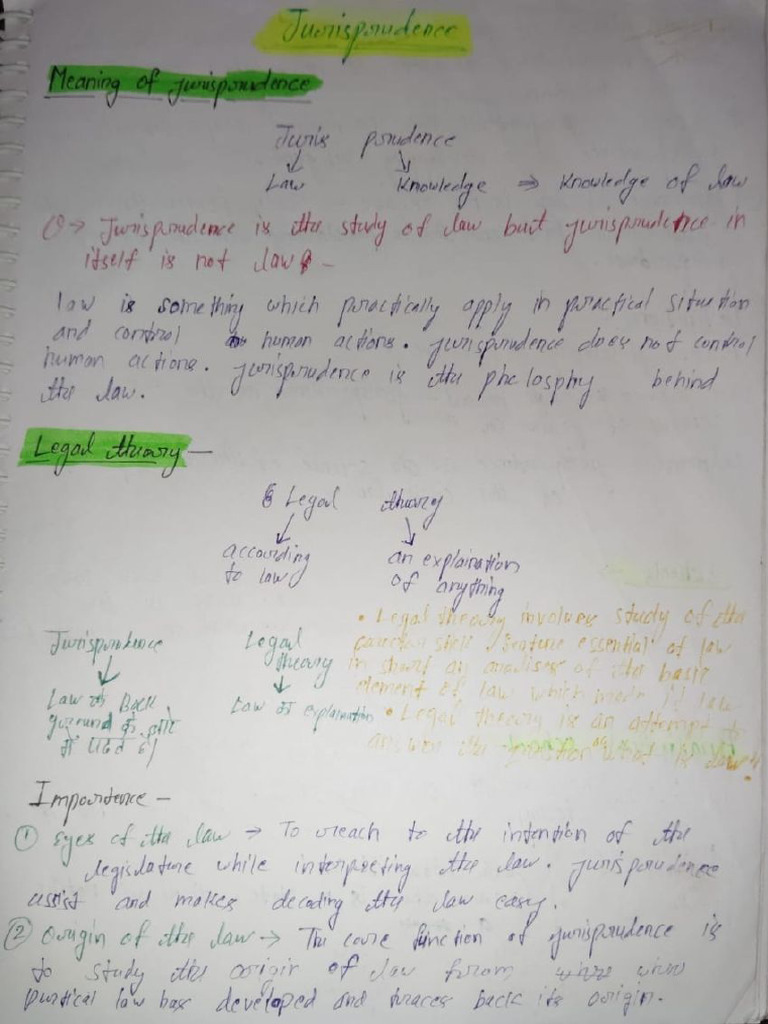 Jurisprudence
Meaning of jurisprudence
Juris prudence
Law Knowledge ⇒ Knowledge of law
→ Jurisprudence is the study of law but jurisprudence in
itself is not law -
law is something which practically apply in practical situation
and control human actions. jurisprudence does not control
human actions. jurisprudence is the phclosphy behind
the law.
Legal theory —
Legal theory
according an explaination
to law of anything
• Legal theory involves study of the
feature essential of law
in short an analises of the basic
element of law which made it law
• Legal theory is an attempt to
answer the question what is law
Jurisprudence Legal
theory
Law के Back Law का explaination
ground के बारे
में
Importence —
① Eyes of the law → To reach to the intention of the
legislature while interpreting the law. jurisprudence
assist and makes decoding the law easy.
② Origin of the law → The core function of jurisprudence is
to study the origin of law from, where
law has developed and traces back its origin.